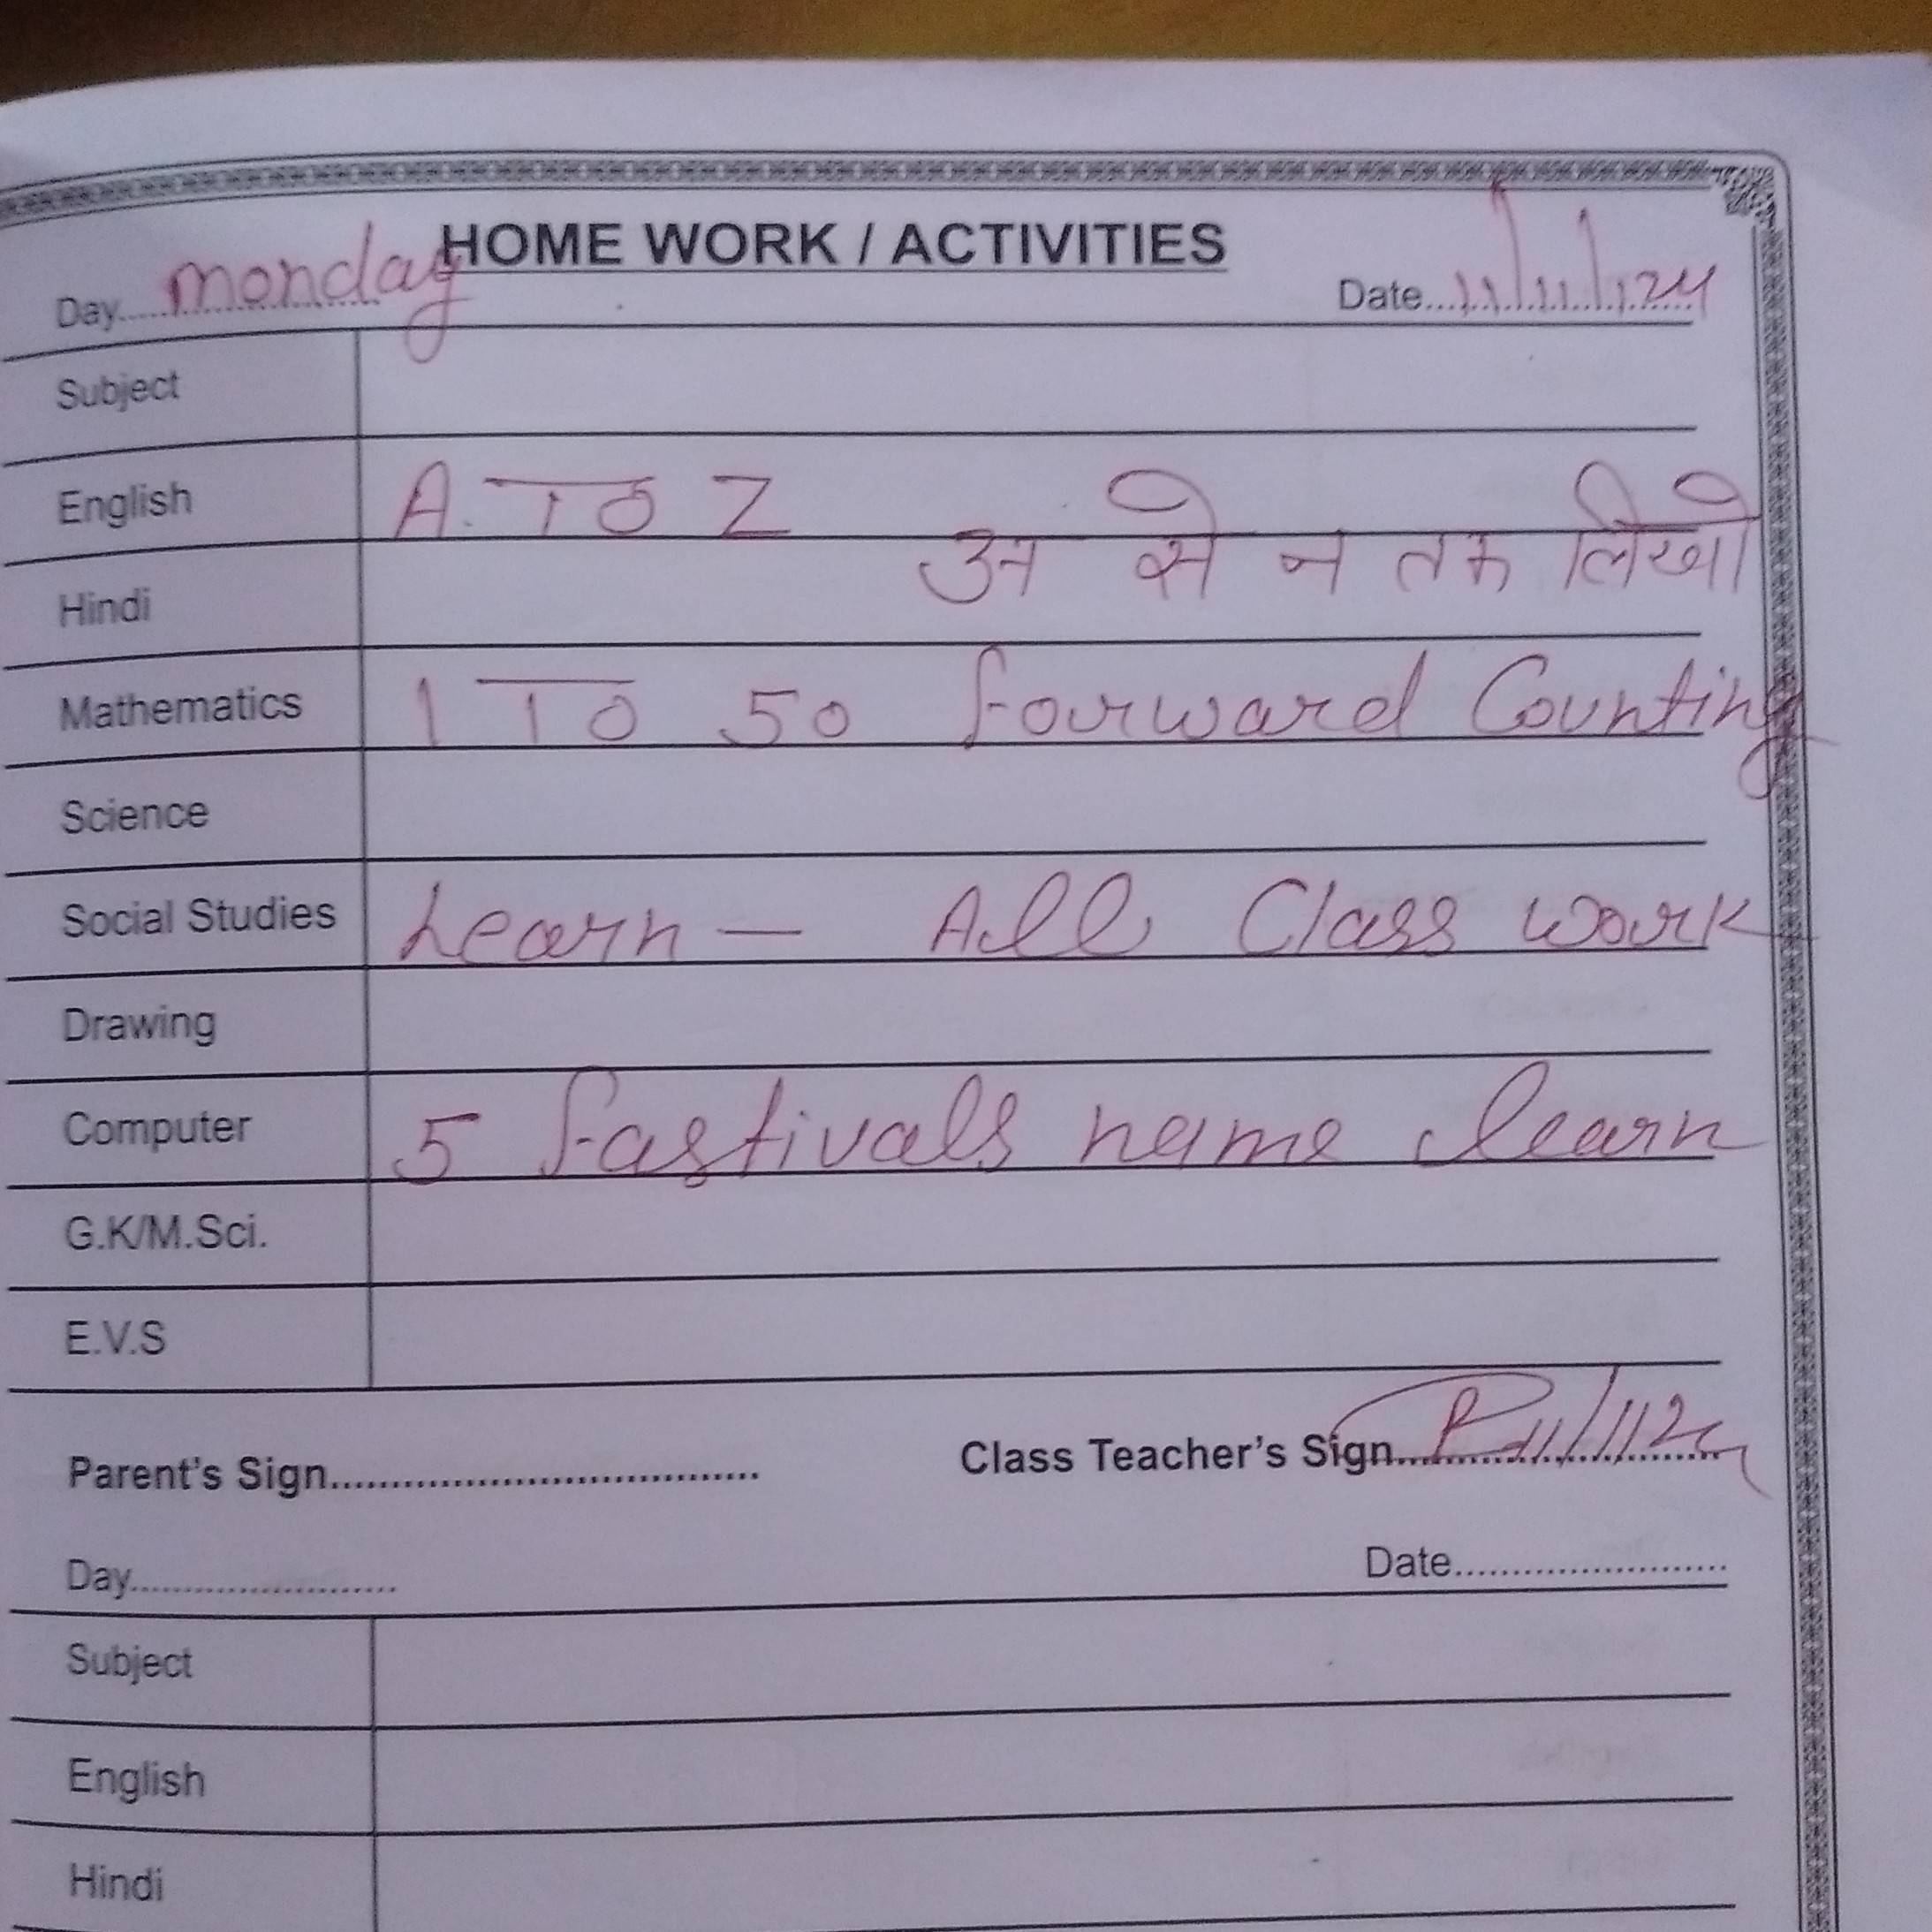 HOME WORK / ACTIVITIES
Day....monday Date...11/11/24
Subject
English A TO Z
Hindi अ से न तक लिखो
Mathematics 1 TO 50 forward Counting
Science
Social Studies Learn - All Class work
Drawing
Computer 5 fastivals name learn
G.K/M.Sci.
E.V.S
Parent's Sign.................................... Class Teacher's Sign....
Day........................ Date........................
Subject
English
Hindi